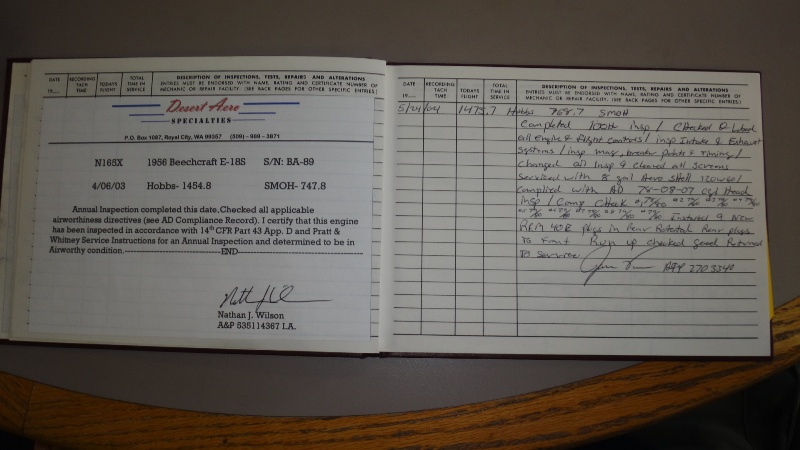 DATE 19___ RECORDING TACH TIME TODAYS FLIGHT TOTAL TIME IN SERVICE
DESCRIPTION OF INSPECTIONS, TESTS, REPAIRS AND ALTERATIONS
ENTRIES MUST BE ENDORSED WITH NAME, RATING AND CERTIFICATE NUMBER OF
MECHANIC OR REPAIR FACILITY. (SEE BACK PAGES FOR OTHER SPECIFIC ENTRIES.)
Desert Aero
SPECIALTIES
P.O. Box 1087, Royal City, WA 99357 (509) - 989 - 3871
N165X 1956 Beechcraft E-18S S/N: BA-89
4/06/03 Hobbs- 1454.8 SMOH- 747.8
Annual Inspection completed this date,Checked all applicable
airworthiness directives (see AD Compliance Record). I certify that this engine
has been inspected in accordance with 14th CFR Part 43 App. D and Pratt &
Whitney Service Instructions for an Annual Inspection and determined to be in
Airworthy condition.---END---
Nathan J. Wilson
A&P 535114367 I.A.
DATE 19___ RECORDING TACH TIME TODAYS FLIGHT TOTAL TIME IN SERVICE
DESCRIPTION OF INSPECTIONS, TESTS, REPAIRS AND ALTERATIONS
ENTRIES MUST BE ENDORSED WITH NAME, RATING AND CERTIFICATE NUMBER OF
MECHANIC OR REPAIR FACILITY. (SEE BACK PAGES FOR OTHER SPECIFIC ENTRIES.)
5/21/04 1475.7 Hobbs 768.7 SMOH
Completed 100Hr insp / Checked & Lubed
all Engine & flight Controls / insp Intake & Exhaust
Systems / insp mag, breaker points & Timing /
Changed oil insp & Cleaned all Screens
Serviced with 8 gal Aero Shell 120W60 /
Complied with AD 78-08-07 Cyl Head
insp / Comp Check
Installed 9 New
REM 40E plugs in Rear Rotated Rear plugs
To Front Run up checked Good Returned
To Service A&P 2703340